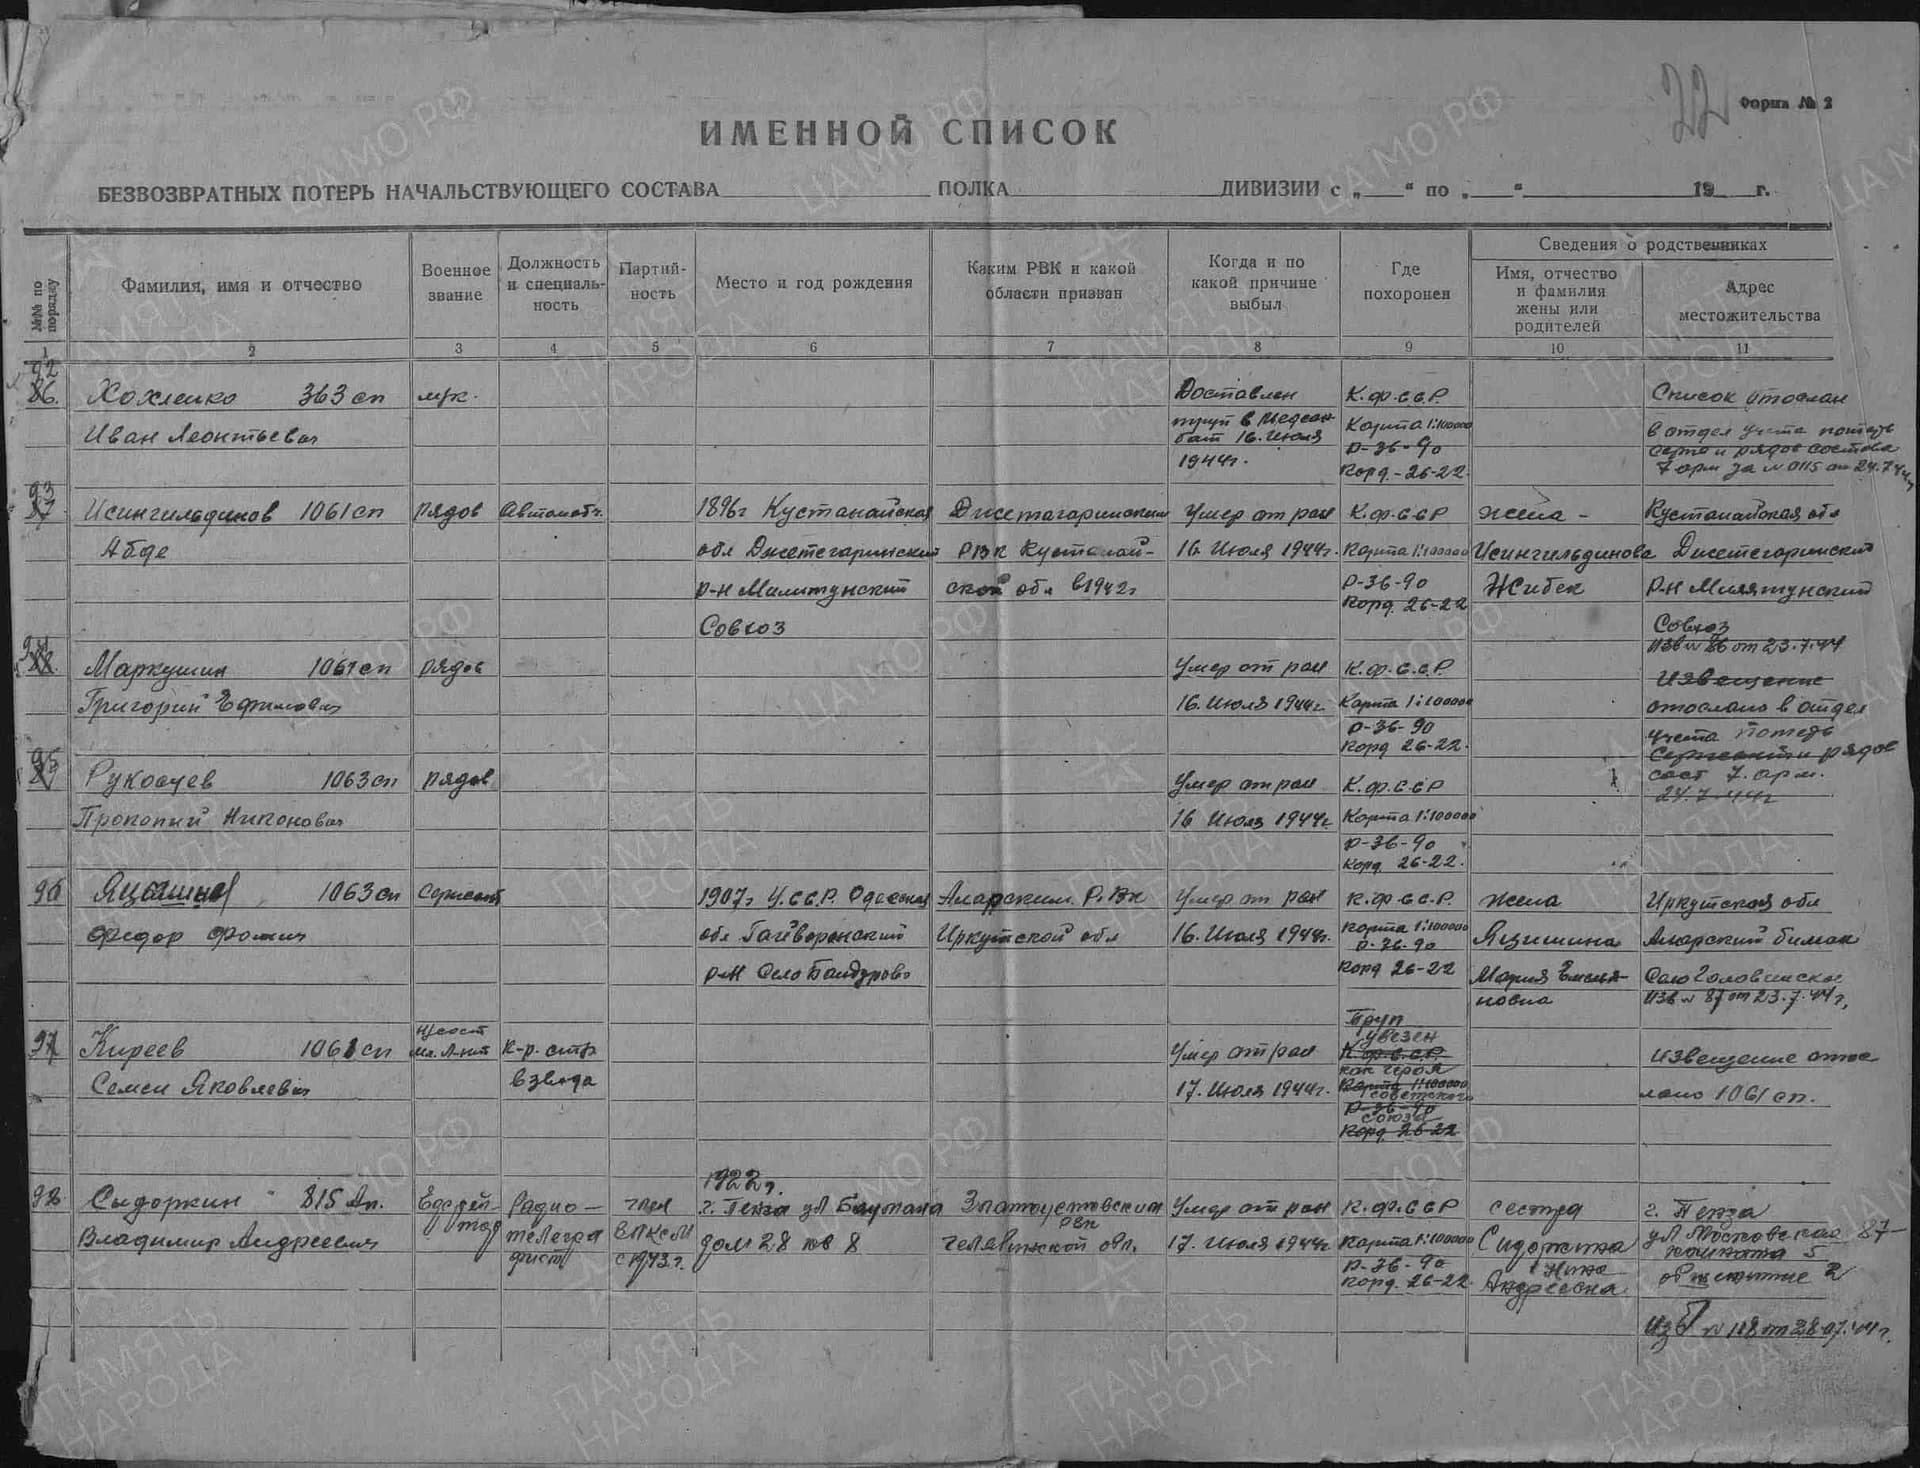 22 Форма № 2
ИМЕННОЙ СПИСОК
БЕЗВОЗВРАТНЫХ ПОТЕРЬ НАЧАЛЬСТВУЮЩЕГО СОСТАВА ПОЛКА ДИВИЗИИ с „ “ по „ “ 19 г.
№№ по порядку
Фамилия, имя и отчество
Военное звание
Должность и специальность
Партийность
Место и год рождения
Каким РВК и какой области призван
Когда и по какой причине выбыл
Где похоронен
Сведения о родственниках
Имя, отчество и фамилия жены или родителей
Адрес местожительства
1 2 3 4 5 6 7 8 9 10 11
92
86. Хохленко 363 сп
Иван Леонтьевич
Доставлен
труп в Медсан
бат 16. Июля
1944г.
К.ф.С.С.Р.
Карта 1:100000
Р-36-90
Корд.-26-22
Список отослан
в отдел учета потерь
серж и рядов состава
7 арм за № 0115 от 24.7.44г
93
87 Исингильдинов 1061 сп
Абде
рядов
Автоматч.
1896г Кустанайская
обл Джетегаринский
р-н Милютунский
Совхоз
Джетагаринским
РВК Кустанай-
ской обл в 1942г
Умер от ран
16. Июля 1944г.
К.ф.ССР
Карта 1:100000
Р-36-90
Корд. 26-22
жена -
Исингильдинова
Жибек
Кустанайская обл
Джетегаринский
р-н Милятунский
Совхоз
Изв № 86 от 23.7.44
94
88. Маркушин 1061 сп
Григорий Ефимович
рядов
Умер от ран
16. Июля 1944г.
К.ф.С.С.Р.
Карта 1:100000
Р-36-90
Корд 26-22.
Извещение
отослано в отдел
учета потерь
Сержант и рядов
сост 7. арм.
24.7.44г
95
89 Рукосуев 1063 сп
Прокопий Никонович
рядов
Умер от ран
16 Июля 1944г
К.ф.ССР
Карта 1:100000
Р-36-90
Корд. 26-22.
96 Яцишин 1063 сп
Федор Фомич
сержант
1907г У.С.С.Р. Одесская
обл Гайворонский
р-н Село Бандурово
Аларским. Р.ВК
Иркутской обл
Умер от ран
16. Июля 1944г.
К.ф.С.С.Р.
Карта 1:100000
Р-36-90
Корд 26-22
жена
Яцишина
Мария
новна
Иркутская обл
Аларский
Село Головинское
Изв № 87 от 23.7.44г,
97 Киреев 1061 сп
Семен Яковлевич
мл. Л-нт
к-р. стр
взвода
Умер от ран
17. Июля 1944г.
Труп
увезен
К.ф.С.С.Р.
как героя
Карта 1:100000
советского
Р-36-90
союза
Корд. 26-22
Извещение отос
лано 1061 сп.
98 Сыдоркин 815 Ап.
Владимир Андреевич
Ефрей-
тор
Радио-
телегра
фист
член
ВЛКСМ
с 1943г.
1922г.
г. Пенза ул Баумана
дом 28 кв 8
Златоустовским
РВК
Челябинской обл.
Умер от ран
17. Июля 1944г
К.ф.ССР
Карта 1:100000
Р-36-90
Корд. 26-22
сестра
Сидоркина
Нина
Андреевна
г. Пенза
ул Московская 87-
комната 5
общежитие 2
Изв № 118 от 28.07.44г.
ЦА МО РФ
ПАМЯТЬ
НАРОДА